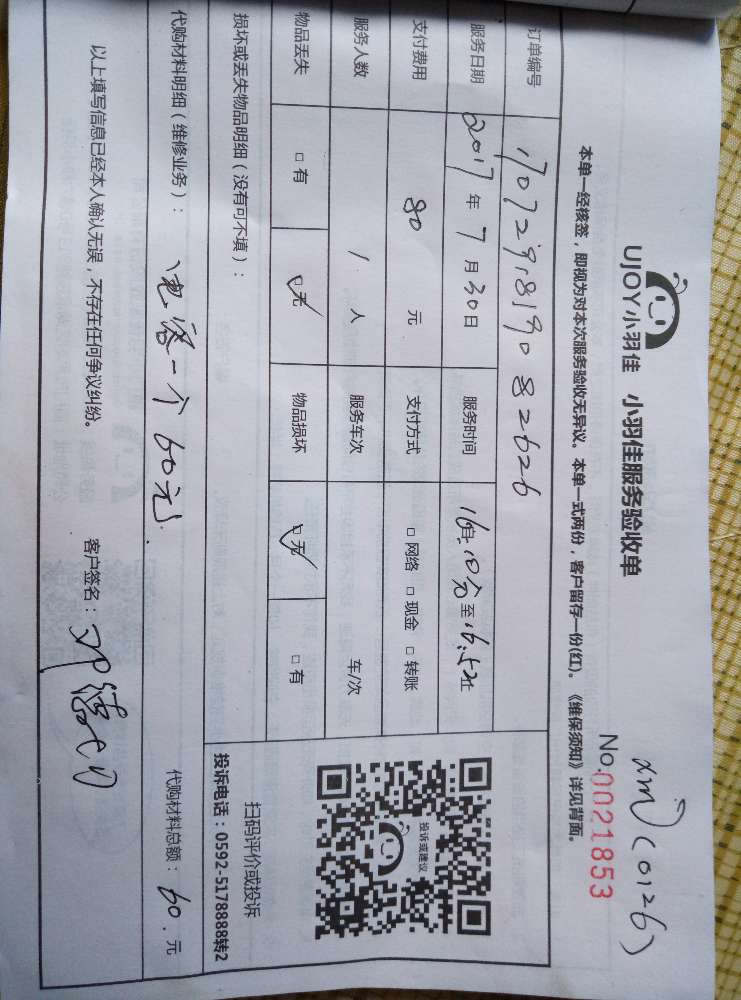 xm(0126)
UJOY小羽佳 小羽佳服务验收单
No.0021853
本单一经核签，即视为对本次服务验收无异议。本单一式两份，客户留存一份(红)。《维保须知》详见背面。
订单编号 170729819082626
服务日期 2017年7月30日 服务时间 16点10分至16:52
支付费用 80元 支付方式 □网络 □现金 □转账
服务人数 1人 服务车次 车/次
物品丢失 □有 □无 物品损坏 □无 □有
投诉或建议
扫码评价或投诉
投诉电话：0592-5178888转2
损坏或丢失物品明细（没有可不填）：
代购材料明细（维修业务）： 电容一个60元. 代购材料总额：60.元
以上填写信息已经本人确认无误，不存在任何争议纠纷。 客户签名：